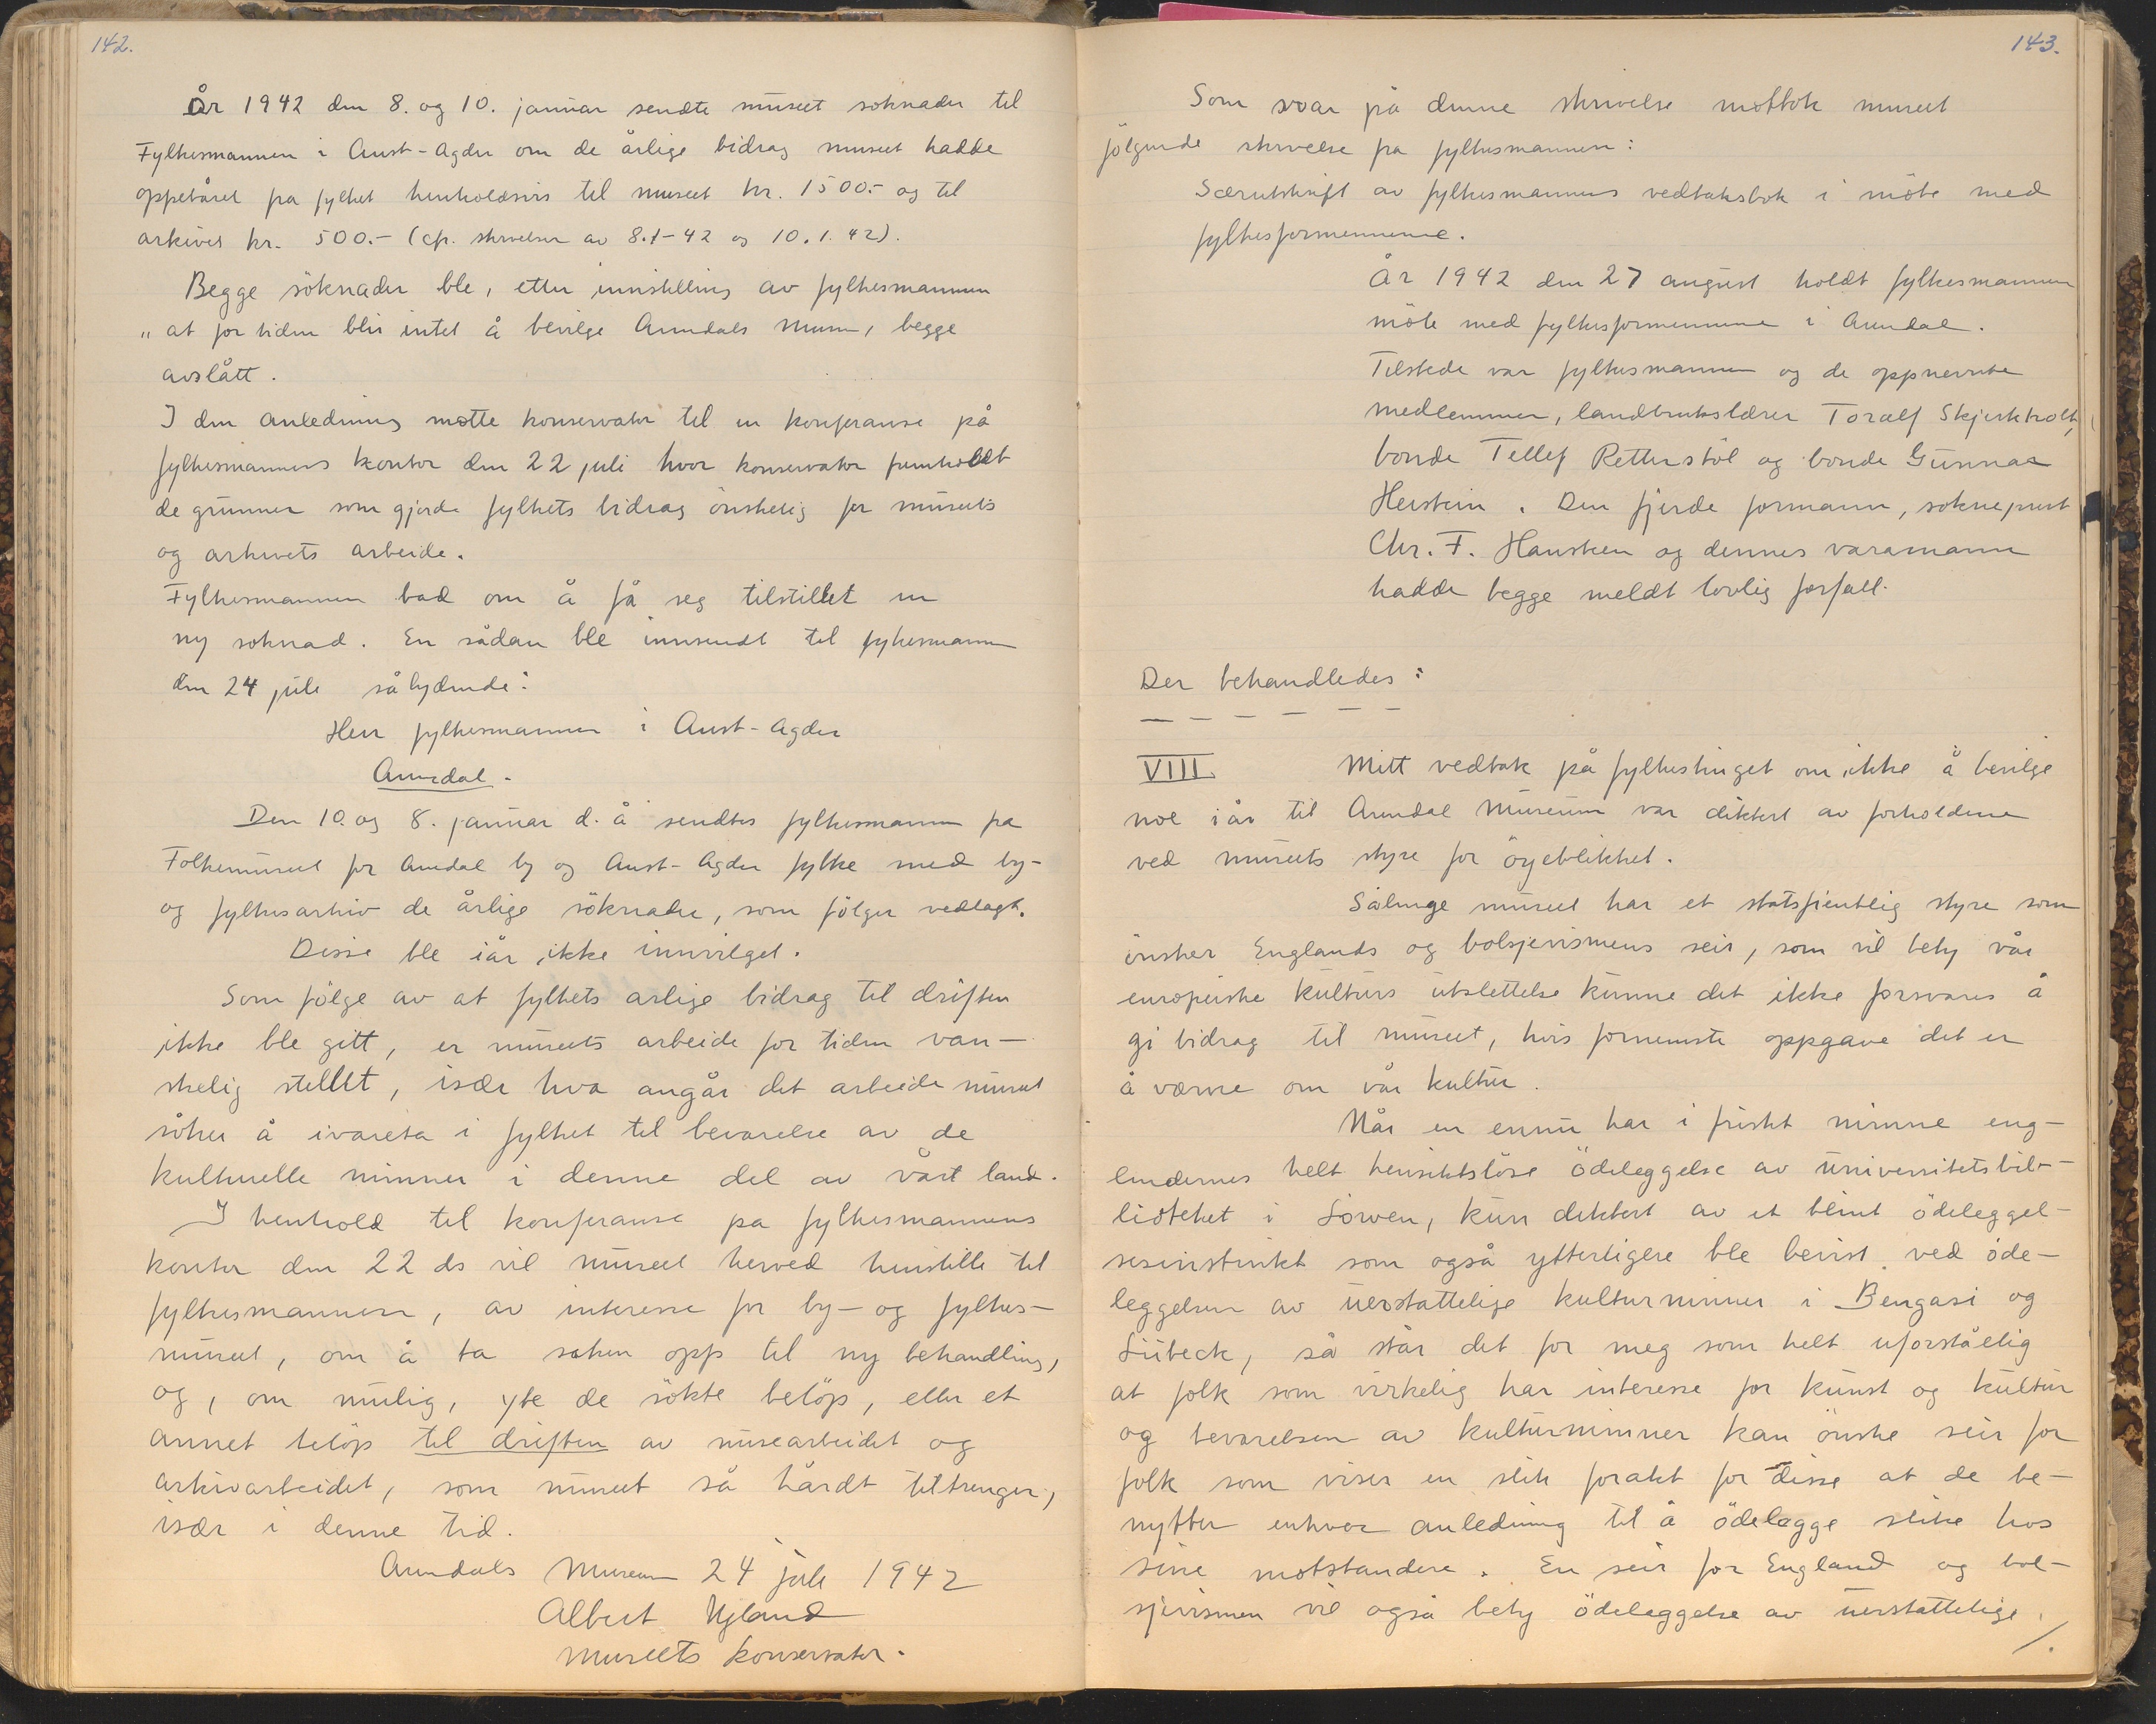 142.
År 1942 den 8. og 10. januar sendte museet söknader til
Fylkesmannen i Aust-Agder om de årlige bidrag museet hadde
oppebåret fra fylket henholdsvis til museet kr. 1500.- og til
arkivet kr. 500.- (cfr. skrivelser av 8.1-42 og 10.1.42).
Begge söknader ble, etter innstilling av fylkesmannen
" at for tiden blir intet å bevilge Arendals Museum, begge
avslått.
I den anledning møtte konservator til en konferanse på
fylkesmannens kontor den 22 juli hvor konservator fremholdt
de grunner som gjorde fylkets bidrag önskelig for museets
og arkivets arbeide.
Fylkesmannen bad om å få seg tilstillet en
ny søknad. En sådan ble innsendt til fylkesmannen
den 24 juli sålydende:
Herr fylkesmannen i Aust-Agder
Arendal.
Den 10. og 8. januar d. å sendtes fylkesmannen fra
Folkemuseet for Arendal by og Aust-Agder fylke med by-
og fylkesarkiv de årlige söknader, som fölger vedlagt.
Disse ble iår ikke innvilget.
Som fölge av at fylkets årlige bidrag til driften
ikke ble gitt, er museets arbeide for tiden van-
skelig stillet, især hva angår det arbeide museet
söker å ivareta i fylket til bevarelse av de
kulturelle minner i denne del av vårt land.
I henhold til konferanse på fylkesmannens
kontor den 22 ds vil museet herved henstille til
fylkesmannen, av interesse for by- og fylkes-
museet, om å ta saken opp til ny behandling,
og, om mulig, yte de sökte belöp, eller et
annet belöp til driften av musearbeidet og
arkivarbeidet, som museet så hårdt tiltrenger,
især i denne tid.
Arendals Museum 24 juli 1942
Albert Ugland
Museets konservator.
143.
Som svar på denne skrivelse mottok museet
fölgende skrivelse fra fylkesmannen:
Særutskrift av fylkesmannens vedtaksbok i möte med
fylkesformennene.
År 1942 den 27 august holdt fylkesmannen
möte med fylkesformennene i Arendal.
Tilstede var fylkesmannen og de oppnevnte
medlemmer, landbrukslærer Toralf Skjerkholt,
bonde Tellef Retterstöl og bonde Gunnar
Heistein. Den fjerde formann, sokneprest
Chr. F. Hansteen og dennes varamann
hadde begge meldt lovlig forfall.
Der behandledes:
VIII Mitt vedtak på fylkestinget om ikke å bevilge
noe iår til Arendal Museum var diktert av forholdene
ved museets styre for öyeblikket.
Sålenge museet har et statsfientlig styre som
önsker Englands og bolsjevismens seir, som vil bety vår
europeiske kulturs utslettelse kunne det ikke forsvares å
gi bidrag til museet, hvis fornemste oppgave det er
å værne om vår kultur.
Når en ennu har i friskt minne eng-
lendernes helt hensiktslöse ödeleggelse av universitetsbib-
lioteket i Löwen, kun diktert av et blint ödeleggel-
sesinstinkt som også ytterligere ble bevist ved öde-
leggelsen av uerstattelige kulturminner i Bengasi og
Lübeck, så står det for meg som helt uforståelig
at folk som virkelig har interesse for kunst og kultur
og bevarelsen av kulturminner kan önske seir for
folk som viser en slik forakt for disse at de be-
nytter enhver anledning til å ödelegge slike hos
sine motstandere. En seir for England og bol-
sjevismen vil også bety ödeleggelse av uerstattelige
./.